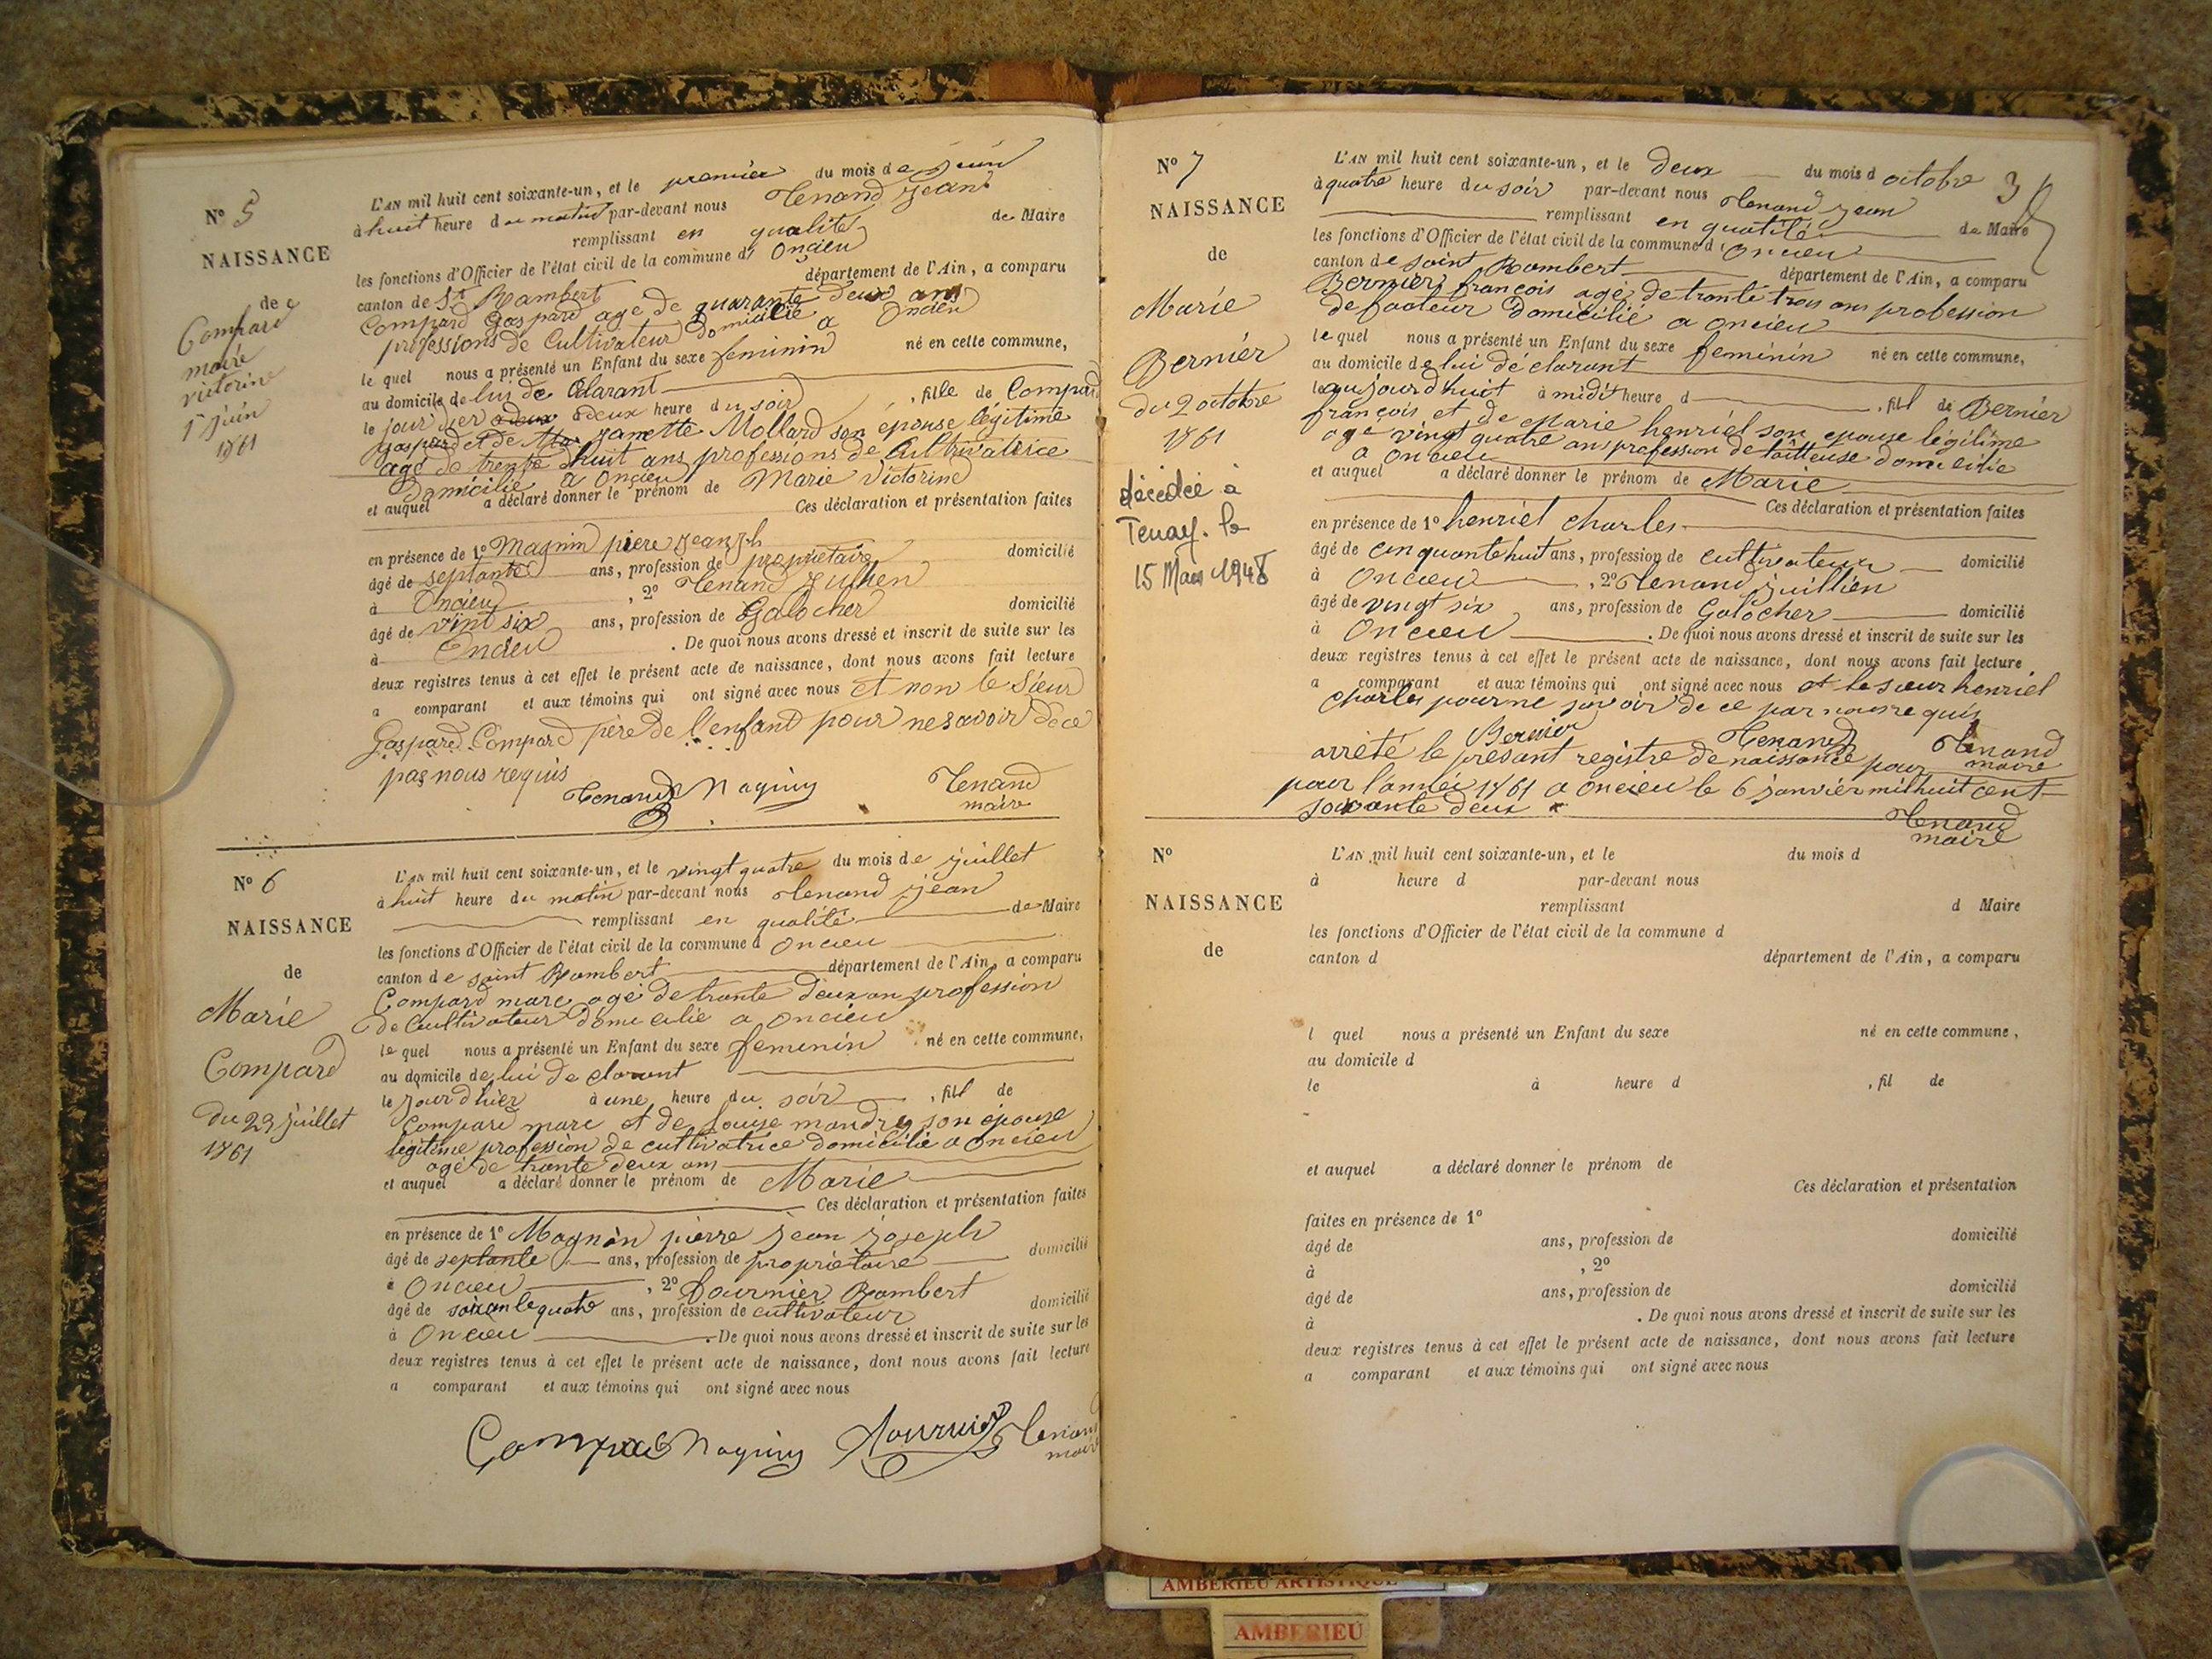 N° 5
NAISSANCE
de
Compard
marie
victorine
1er juin
1861
L'AN mil huit cent soixante-un, et le premier du mois de juin
à huit heure du matin par-devant nous Tenand Jean
remplissant en qualité de Maire
les fonctions d'Officier de l'état civil de la commune d' Oncieu
canton de St Rambert département de l'Ain, a comparu
Compard Gaspard agé de quarante deux ans
professions de Cultivateur Domicilié a Oncieu
le quel nous a présenté un Enfant du sexe feminin né en cette commune,
au domicile de lui de Clarant
le jour d'hier a deux heure du soir, fille de Compard
Gaspard et de Janette Mollard son épouse légitime
agé de trente huit ans professions de Cultivatrice
Domicilié a Oncieu
et auquel a déclaré donner le prénom de Marie Victorine
Ces déclaration et présentation faites
en présence de 1° Magnin piere Jean Jph
âgé de septante ans, profession de propriétaire domicilié
à Oncieu, 2° Tenand Julien
âgé de vint six ans, profession de Galocher domicilié
à Oncieu. De quoi nous avons dressé et inscrit de suite sur les
deux registres tenus à cet effet le présent acte de naissance, dont nous avons fait lecture
a comparant et aux témoins qui ont signé avec nous et non le Sieur
Gaspard Compard père de l'enfant pour ne savoir de ce
pas nous requis
Tenand Magnin Tenand
maire
N° 6
NAISSANCE
de
Marie
Compard
du 23 juillet
1861
L'AN mil huit cent soixante-un, et le vingt quatre du mois de juillet
à huit heure du matin par-devant nous Tenand jean
remplissant en qualité de Maire
les fonctions d'Officier de l'état civil de la commune d Oncieu
canton de saint Rambert département de l'Ain, a comparu
Compard marc agé de trante deux an profession
de Cultivateur domicilié a Oncieu
le quel nous a présenté un Enfant du sexe feminin né en cette commune,
au domicile de lui de clarant
le jour d'hier à une heure du soir, fill de
Compard marc et de Louise mandry son épouse
légitime profession de cultivatrice domicilié a Oncieu
agé de trante deux ans
et auquel a déclaré donner le prénom de Marie
Ces déclaration et présentation faites
en présence de 1° Magnin pierre jean joseph
âgé de septante ans, profession de propriétaire domicilié
à Oncieu, 2° Fournier Rambert
âgé de soixante quatre ans, profession de cultivateur domicilié
à Oncieu. De quoi nous avons dressé et inscrit de suite sur les
deux registres tenus à cet effet le présent acte de naissance, dont nous avons fait lecture
a comparant et aux témoins qui ont signé avec nous
Compard Magnin Fournier Tenand
maire
3
N° 7
NAISSANCE
de
Marie
Bernier
du 2 octobre
1861
décédée à
Tenay. le
15 Mars 1948
L'AN mil huit cent soixante-un, et le deux du mois d octobre
à quatre heure du soir par-devant nous Tenand jean
remplissant en qualité de Maire
les fonctions d'Officier de l'état civil de la commune d Oncieu
canton de saint Rambert département de l'Ain, a comparu
Bernier françois agé de trante trois ans profession
de facteur Domicilié a oncieu
le quel nous a présenté un Enfant du sexe feminin né en cette commune,
au domicile de lui déclarant
le aujourd'huit à midit heure d, fill de Bernier
françois et de Marie henriel son epouse légitime
agé vingt quatre ans profession de tailleuse domicilié
a Oncieu
et auquel a déclaré donner le prénom de Marie
Ces déclaration et présentation faites
en présence de 1° henriel charles
âgé de cinquante huit ans, profession de cultivateur domicilié
à Oncieu, 2° Tenand juillien
âgé de vingt six ans, profession de Galocher domicilié
à Oncieu. De quoi nous avons dressé et inscrit de suite sur les
deux registres tenus à cet effet le présent acte de naissance, dont nous avons fait lecture
a comparant et aux témoins qui ont signé avec nous et le sieur henriel
charles pour ne savoir de ce par nous requis
Bernier Tenand Tenand
maire
arrété le présant registre de naissance pour
pour l'année 1861 a Oncieu le 6 janvier mil huit cent
soixante deux
Tenand
maire
N°
NAISSANCE
de
L'AN mil huit cent soixante-un, et le du mois d
à heure d par-devant nous
remplissant d Maire
les fonctions d'Officier de l'état civil de la commune d
canton d département de l'Ain, a comparu
l quel nous a présenté un Enfant du sexe né en cette commune,
au domicile d
le à heure d, fil de
et auquel a déclaré donner le prénom de
Ces déclaration et présentation
faites en présence de 1°
âgé de ans, profession de domicilié
à, 2°
âgé de ans, profession de domicilié
à. De quoi nous avons dressé et inscrit de suite sur les
deux registres tenus à cet effet le présent acte de naissance, dont nous avons fait lecture
a comparant et aux témoins qui ont signé avec nous
AMBERIEU ARTISTIQUE
AMBERIEU